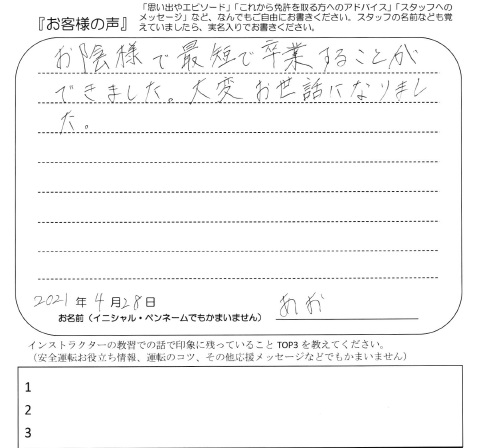 『お客様の声』
「思い出やエピソード」「これから免許を取る方へのアドバイス」「スタッフへの
メッセージ」など、なんでもご自由にお書きください。スタッフの名前なども覚
えていましたら、実名入りでお書きください。
お陰様で最短で卒業することが
できました。大変お世話になりまし
た。
2021年4月28日
お名前（イニシャル・ペンネームでもかまいません）
あお
インストラクターの教習での話で印象に残っていること TOP3 を教えてください。
（安全運転お役立ち情報、運転のコツ、その他応援メッセージなどでもかまいません）
1
2
3